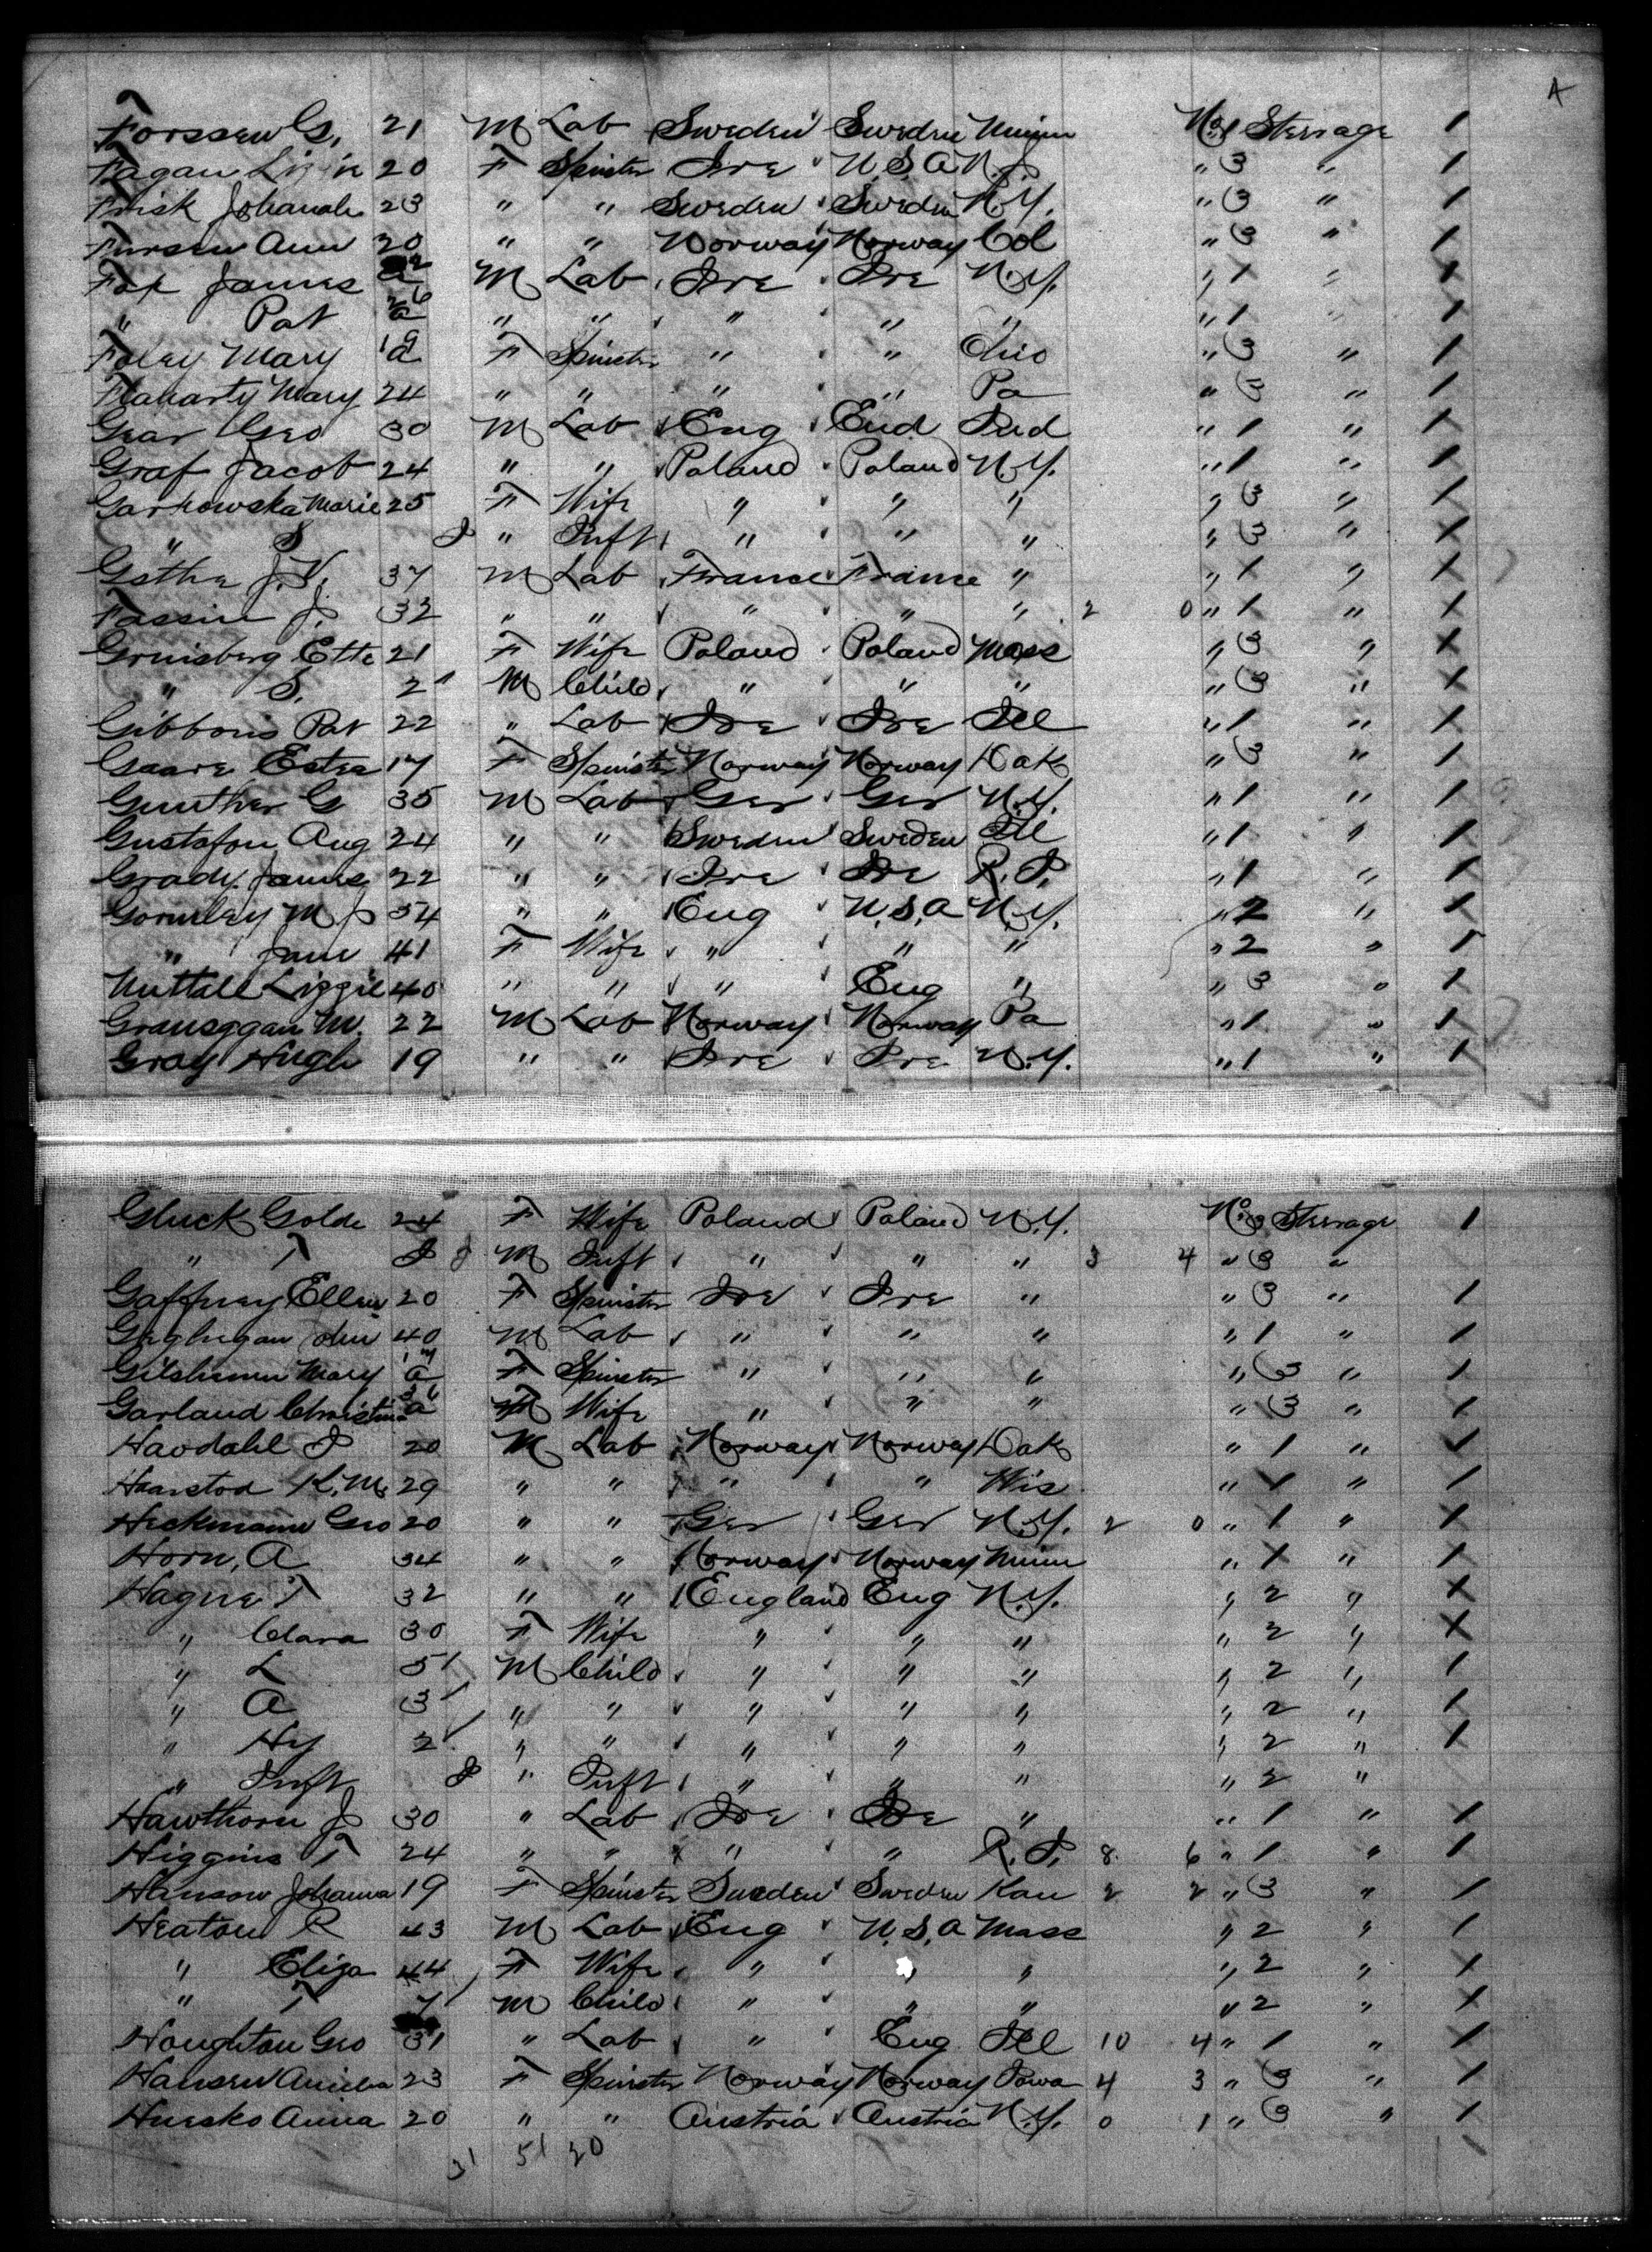 A
Forssen G. 21 M Lab Sweden Sweden Minn No 1 Steerage 1
Fagan Lizzie 20 F Spinster Ire U.S.A N.J. " 3 " 1
Frisk Johanah 23 " " Sweden Sweden N.Y. " 3 " 1
Ann 20 " " Norway Norway Col " 3 " 1
Fox James M Lab Ire Ire N.Y. " 1 " 1
" Pat 26 " " " " " " 1 " 1
Foley Mary 19 F Spinster " " Ohio " 3 " 1
Flaharty Mary 24 " " " " Pa " 3 " 1
Gear Geo 30 M Lab Eng End Ind " 1 " 1
Graf Jacob 24 " " Poland Poland N.Y. " 1 " 1
Garkowska Marie 25 F Wife " " " " 3 " 1
" S I " Inft " " " " 3 " 1
J.V. 37 M Lab France France " " 1 " 1
Fassin J. 32 " " " " " 2 0 " 1 " 1
Grinsberg Ette 21 F Wife Poland Poland Mass " 3 " 1
" S. 2 M Child " " " " 3 " 1
Gibbons Pat 22 " Lab Ire Ire Ill " 1 " 1
Gaare Ester 17 F Spinster Norway Norway Dak " 3 " 1
Gunther G 35 M Lab Ger Ger N.Y. " 1 " 1
Gustafon Aug 24 " " Sweden Sweden Ill " 1 " 1
Grady James 22 " " Ire Ire R.I. " 1 " 1
Gormley M J 54 " " Eng U.S.A N.Y. " 2 " 1
" Jane 41 F Wife " " " " 2 " 1
Nuttall Lizzie 40 " " " Eng " " 3 " 1
M. 22 M Lab Norway Norway Pa " 1 " 1
Gray Hugh 19 " " Ire Ire N.Y. " 1 " 1
Gluck Golde 24 F Wife Poland Poland N.Y. No. 3 Steerage 1
" T I M Inft " " " 3 4 " 3 "
Gaffney Ellen 20 F Spinster Ire Ire " " 3 " 1
Geghegan 40 M Lab " " " " 1 " 1
Mary 17 F Spinster " " " " 3 " 1
Garland Christina 36 Wife " " " " 3 " 1
Havdahl I 20 M Lab Norway Norway Dak " 1 " 1
Haarstad K.M. 29 " " " " Wis " 1 " 1
Heckmann Geo 20 " " Ger Ger N.Y. 2 0 " 1 " 1
Horn, A 34 " " Norway Norway Minn " 1 " 1
Hague T 32 " " England Eng N.Y. " 2 " 1
" Clara 30 F Wife " " " " 2 " 1
" L 5 M Child " " " " 2 " 1
" A 3 " " " " " " 2 " 1
" Hy 2 " " " " " " 2 " 1
" Inft I " Inft " " " " 2 "
Hawthorn J 30 " Lab Ire Ire " " 1 " 1
Higgins T 24 " " " " R.I. 8 6 " 1 " 1
Hanson Johanna 19 F Spinster Sweden Sweden Kan 2 2 " 3 " 1
Heaton R 43 M Lab Eng U.S.A Mass " 2 " 1
" Eliza 44 F Wife " " " " 2 " 1
" T 7 M Child " " " " 2 " 1
Houghton Geo 31 " Lab " Eng Ill 10 4 " 1 " 1
Hansen Amelia 23 F Spinster Norway Norway Iowa 4 3 " 3 " 1
Huesko Anna 20 " " Austria Austria N.Y. 0 1 " 3 " 1
31 51 20